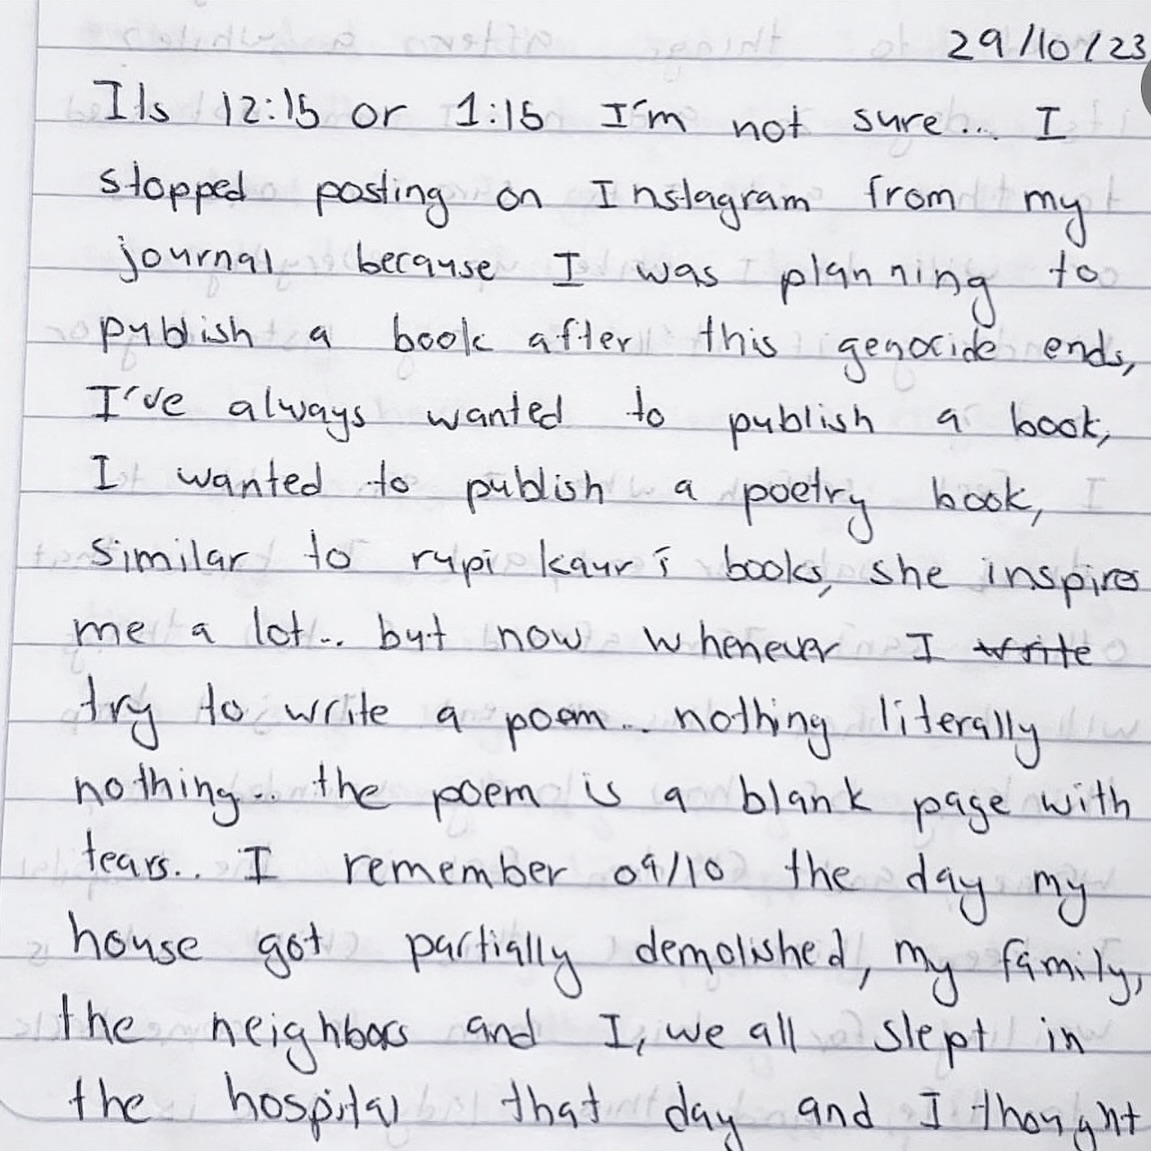 29/10/23
Its 12:15 or 1:15 I'm not sure... I
stopped posting on Instagram from my
journal because I was planning to
publish a book after this genocide ends,
I've always wanted to publish a book,
I wanted to publish a poetry book,
similar to rupi kaur's books, she inspires
me a lot... but now whenever I write
try to write a poem... nothing literally
nothing... the poem is a blank page with
tears.. I remember 09/10 the day my
house got partially demolished, my family,
the neighbors and I, we all slept in
the hospital that day and I thought